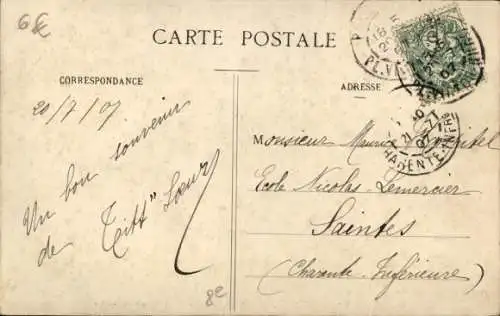 6€
CARTE POSTALE
CORRESPONDANCE
ADRESSE
20/7/07
Un bon souvenir
de "Titt" Soeur
MONSIEUR Maurice
Ecole Nicolas Lemercier
Saintes
(Charente-Inférieure)
8€
CHARENTE-INFRE